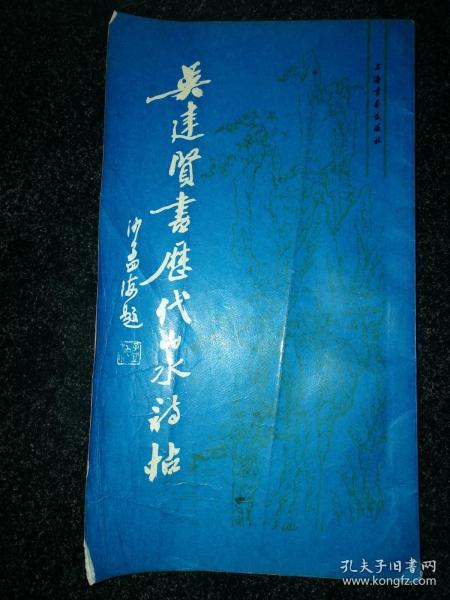 上海书画出版社
吴建贤书历代山水诗帖
沙孟海题
孔夫子旧书网
www.kongfz.com